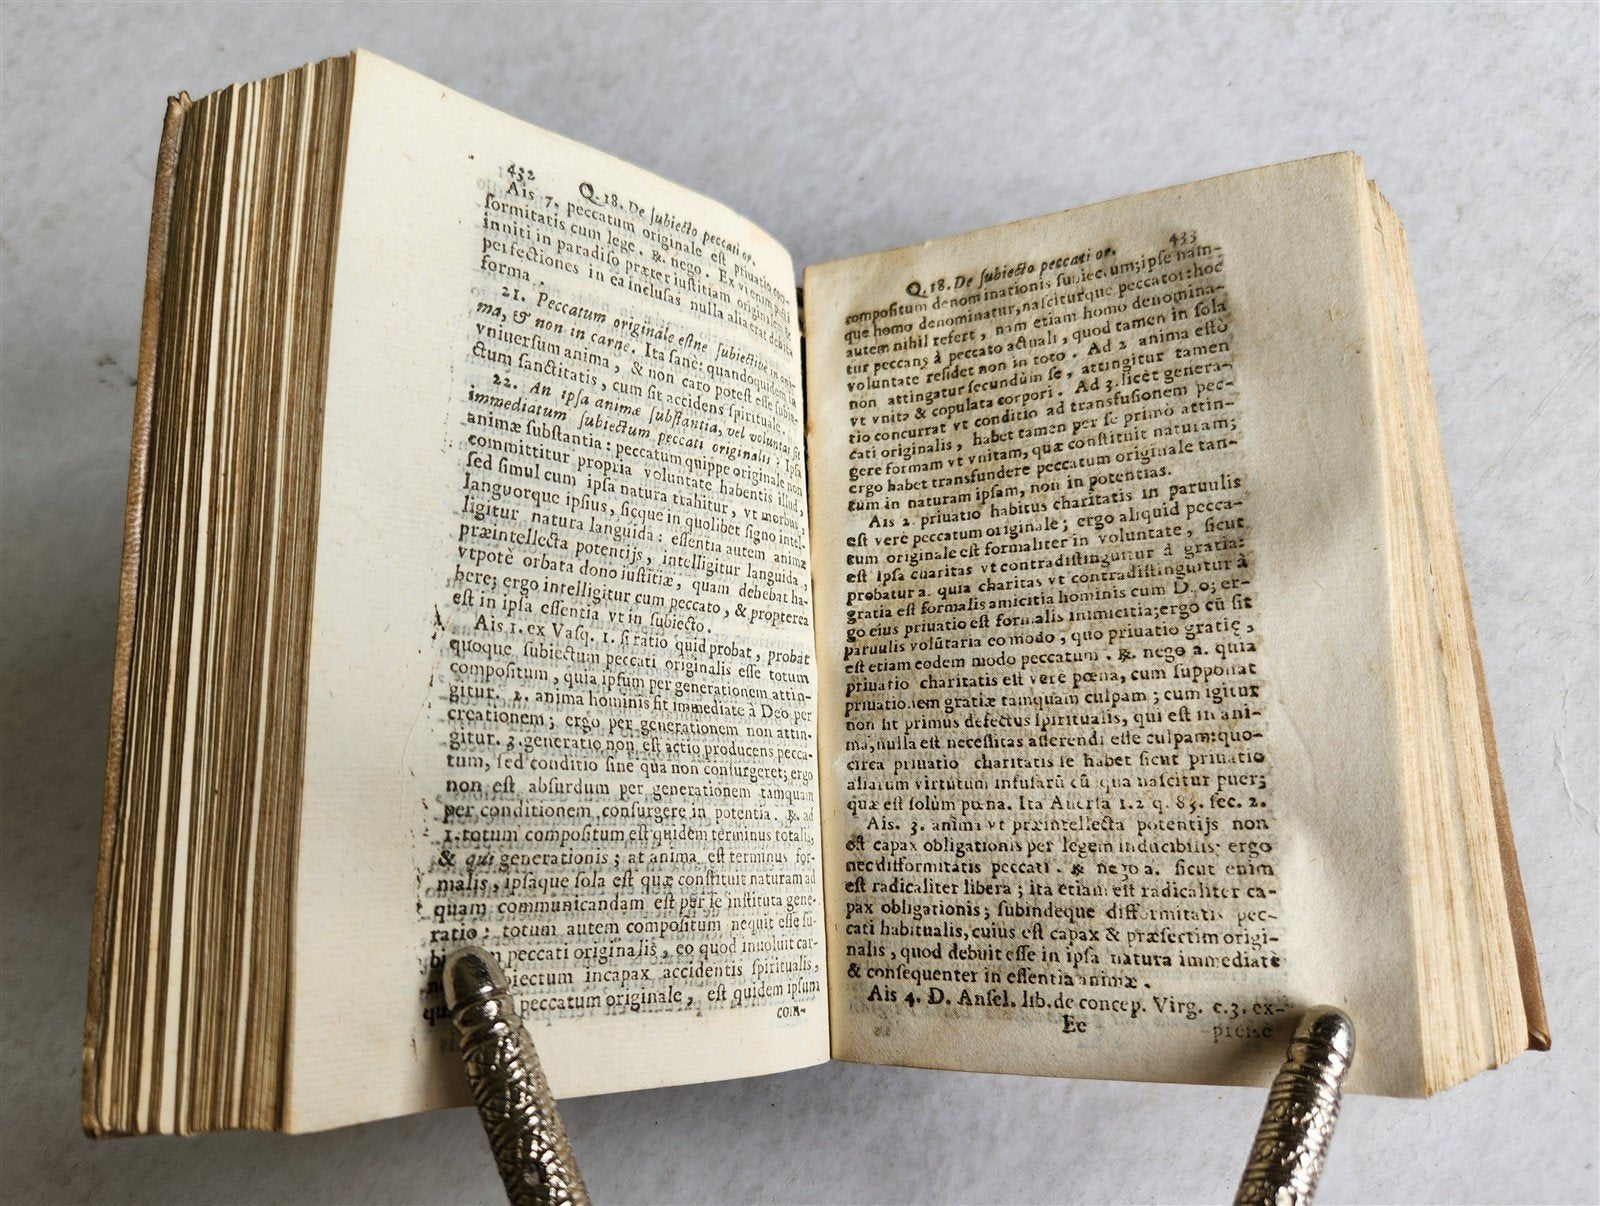 432 Q. 18. De ſubiecto peccati or.
Ais 7. peccatum originale eſt priuatio con-
formitatis cum lege. ℞. nego. Ex vi enim poſſi
inniti in paradiſo præter iuſtitiam originalem &
perfectiones in ea inclusas nulla alia erat debita
forma.
21. Peccatum originale eſtne ſubiectiuè in ani-
ma, & non in carne. Ita sanè: quandoquidem
vniuersum anima, & non caro poteſt eſſe ſubie-
ctum ſanctitatis, cum ſit accidens ſpirituale.
22. An ipſa animæ ſubſtantia, vel voluntas ſit
immediatum ſubiectum peccati originalis? Ipſa
animæ ſubſtantia: peccatum quippe originale non
committitur propria voluntate habentis illud,
ſed ſimul cum ipſa natura trahitur, vt morbus,
languorque ipſius, ſicque in quolibet ſigno intel-
ligitur natura languida: eſſentia autem animæ
præintellecta potentijs, intelligitur languida,
vtpotè orbata dono iuſtitiæ, quam debebat ha-
bere; ergo intelligitur cum peccato, & propterea
eſt in ipſa eſſentia vt in ſubiecto.
Ais 1. ex Vaſq. 1. ſi ratio quid probat, probat
quoque ſubiectum peccati originalis eſſe totum
compoſitum, quia ipſum per generationem attin-
gitur. 2. anima hominis fit immediate à Deo per
creationem; ergo per generationem non attin-
gitur. 3. generatio non eſt actio producens pecca-
tum, ſed conditio ſine qua non conſurgeret; ergo
non eſt abſurdum per generationem tamquam
per conditionem conſurgere in potentia. ℞. ad
1. totum compoſitum eſt quidem terminus totalis,
& qui generationis; at anima eſt terminus for-
malis, ipſaque ſola eſt quæ conſtituit naturam ad
quam communicandam eſt per ſe inſtituta gene-
ratio: totum autem compoſitum nequit eſſe ſu-
peccati originalis, eo quod inuoluit car-
ubiectum incapax accidentis ſpiritualis,
peccatum originale, eſt quidem ipſum
com-
433
Q. 18. De ſubiecto peccati or.
compoſitum denominationis ſubiectum; ipſe nam-
que homo denominatur, naſciturque peccator: hoc
autem nihil refert, nam etiam homo denomina-
tur peccans à peccato actuali, quod tamen in ſola
voluntate reſidet non in toto. Ad 2 anima eſtò
non attingatur ſecundùm ſe, attingitur tamen
vt vnita & copulata corpori. Ad 3. licèt genera-
tio concurrat vt conditio ad transfuſionem pec-
cati originalis, habet tamen per ſe primo attin-
gere formam vt vnitam, quæ conſtituit naturam;
ergo habet transfundere peccatum originale tan-
tum in naturam ipſam, non in potentias.
Ais 2. priuatio habitus charitatis in paruulis
eſt verè peccatum originale; ergo aliquid pecca-
tum originale eſt formaliter in voluntate, ſicut
eſt ipſa charitas vt contradiſtinguitur à gratia:
probatur a. quia charitas vt contradiſtinguitur à
gratia eſt formalis amicitia hominis cum D. o; er-
go eius priuatio eſt formalis inimicitia; ergo cū ſit
paruulis volūtaria eo modo, quo priuatio gratię,
eſt etiam eodem modo peccatum. ℞. nego a. quia
priuatio charitatis eſt vere pœna, cum ſupponat
priuationem gratiæ tamquam culpam; cum igitur
non ſit primus defectus ſpiritualis, qui eſt in ani-
ma, nulla eſt neceſſitas aſſerendi eſſe culpam: quo-
circa priuatio charitatis ſe habet ſicut priuatio
aliarum virtutum infuſarū cū qua naſcitur puer;
quæ eſt ſolùm pœna. Ita Auerſa 1.2 q. 83. ſec. 2.
Ais. 3. anima vt præintellecta potentijs non
eſt capax obligationis per legem inducibilis: ergo
nec difformitatis peccati. ℞ nego a. ſicut enim
eſt radicaliter libera; ita etiam eſt radicaliter ca-
pax obligationis; ſubindeque difformitatis pec-
cati habitualis, cuius eſt capax & præſertim origi-
nalis, quod debuit eſſe in ipſa natura immediatè
& conſequenter in eſſentia animæ.
Ais 4. D. Anſel. lib. de concep. Virg. c. 3. ex-
Ee preſſe